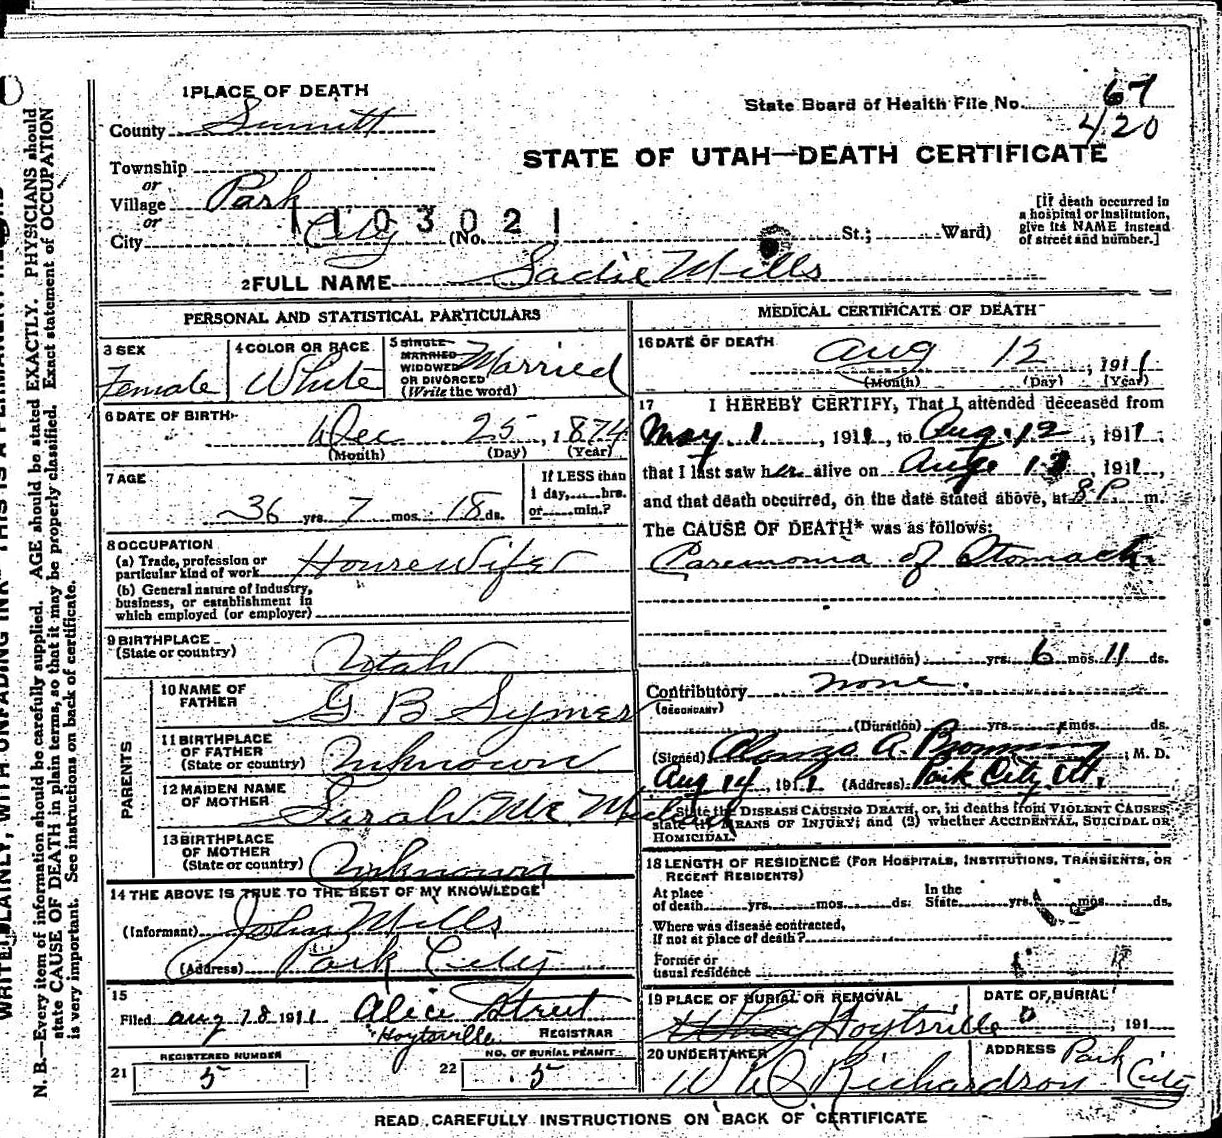 1 PLACE OF DEATH
State Board of Health File No. 67
420
County Summit
STATE OF UTAH—DEATH CERTIFICATE
Township
or
Village Park
or
1103021
City City (No. St.; Ward)
[If death occurred in
a hospital or institution,
give its NAME instead
of street and number.]
2 FULL NAME Sadie Mills
PERSONAL AND STATISTICAL PARTICULARS
3 SEX
Female
4 COLOR OR RACE
White
5 SINGLE
MARRIED
WIDOWED
OR DIVORCED
(Write the word)
Married
6 DATE OF BIRTH
Dec 25, 1874
(Month) (Day) (Year)
7 AGE
36 yrs. 7 mos. 18 ds.
If LESS than
1 day, hrs.
or min.?
8 OCCUPATION
(a) Trade, profession or
particular kind of work Housewife
(b) General nature of Industry,
business, or establishment in
which employed (or employer)
9 BIRTHPLACE
(State or country) Utah
PARENTS
10 NAME OF
FATHER G B Symes
11 BIRTHPLACE
OF FATHER
(State or country) Unknown
12 MAIDEN NAME
OF MOTHER Sarah Mc
13 BIRTHPLACE
OF MOTHER
(State or country) Unknown
14 THE ABOVE IS TRUE TO THE BEST OF MY KNOWLEDGE
(Informant) John Mills
(Address) Park City
15
Filed Aug 18 1911 Alice Street
Hoytsville REGISTRAR
REGISTERED NUMBER
21 5
NO. OF BURIAL PERMIT
22 5
MEDICAL CERTIFICATE OF DEATH
16 DATE OF DEATH
Aug 12, 1911
(Month) (Day) (Year)
17 I HEREBY CERTIFY, That I attended deceased from
May 1, 1911, to Aug. 12, 1911,
that I last saw her alive on Aug 12, 1911,
and that death occurred, on the date stated above, at 8 P m.
The CAUSE OF DEATH* was as follows:
of Stomach.
(Duration) yrs. 6 mos. 11 ds.
Contributory none.
(SECONDARY)
(Duration) yrs. mos. ds.
(Signed) Alonzo A. , M. D.
Aug 14, 1911 (Address) Park City, Ut.
State the DISEASE CAUSING DEATH, or, in deaths from VIOLENT CAUSES,
state (1) MEANS OF INJURY; and (2) whether ACCIDENTAL, SUICIDAL OR
HOMICIDAL.
18 LENGTH OF RESIDENCE (FOR HOSPITALS, INSTITUTIONS, TRANSIENTS, OR
RECENT RESIDENTS)
At place
of death yrs. mos. ds.
In the
State yrs. mos. ds.
Where was disease contracted,
if not at place of death?
Former or
usual residence
19 PLACE OF BURIAL OR REMOVAL
Hoytsville
DATE OF BURIAL
, 191
20 UNDERTAKER
Richardson
ADDRESS Park
City
READ CAREFULLY INSTRUCTIONS ON BACK OF CERTIFICATE
WRITE PLAINLY, WITH UNFADING INK—THIS IS A PERMANENT RECORD
N. B.—Every item of information should be carefully supplied. AGE should be stated EXACTLY. PHYSICIANS should
state CAUSE OF DEATH in plain terms, so that it may be properly classified. Exact statement of OCCUPATION
is very important. See instructions on back of certificate.